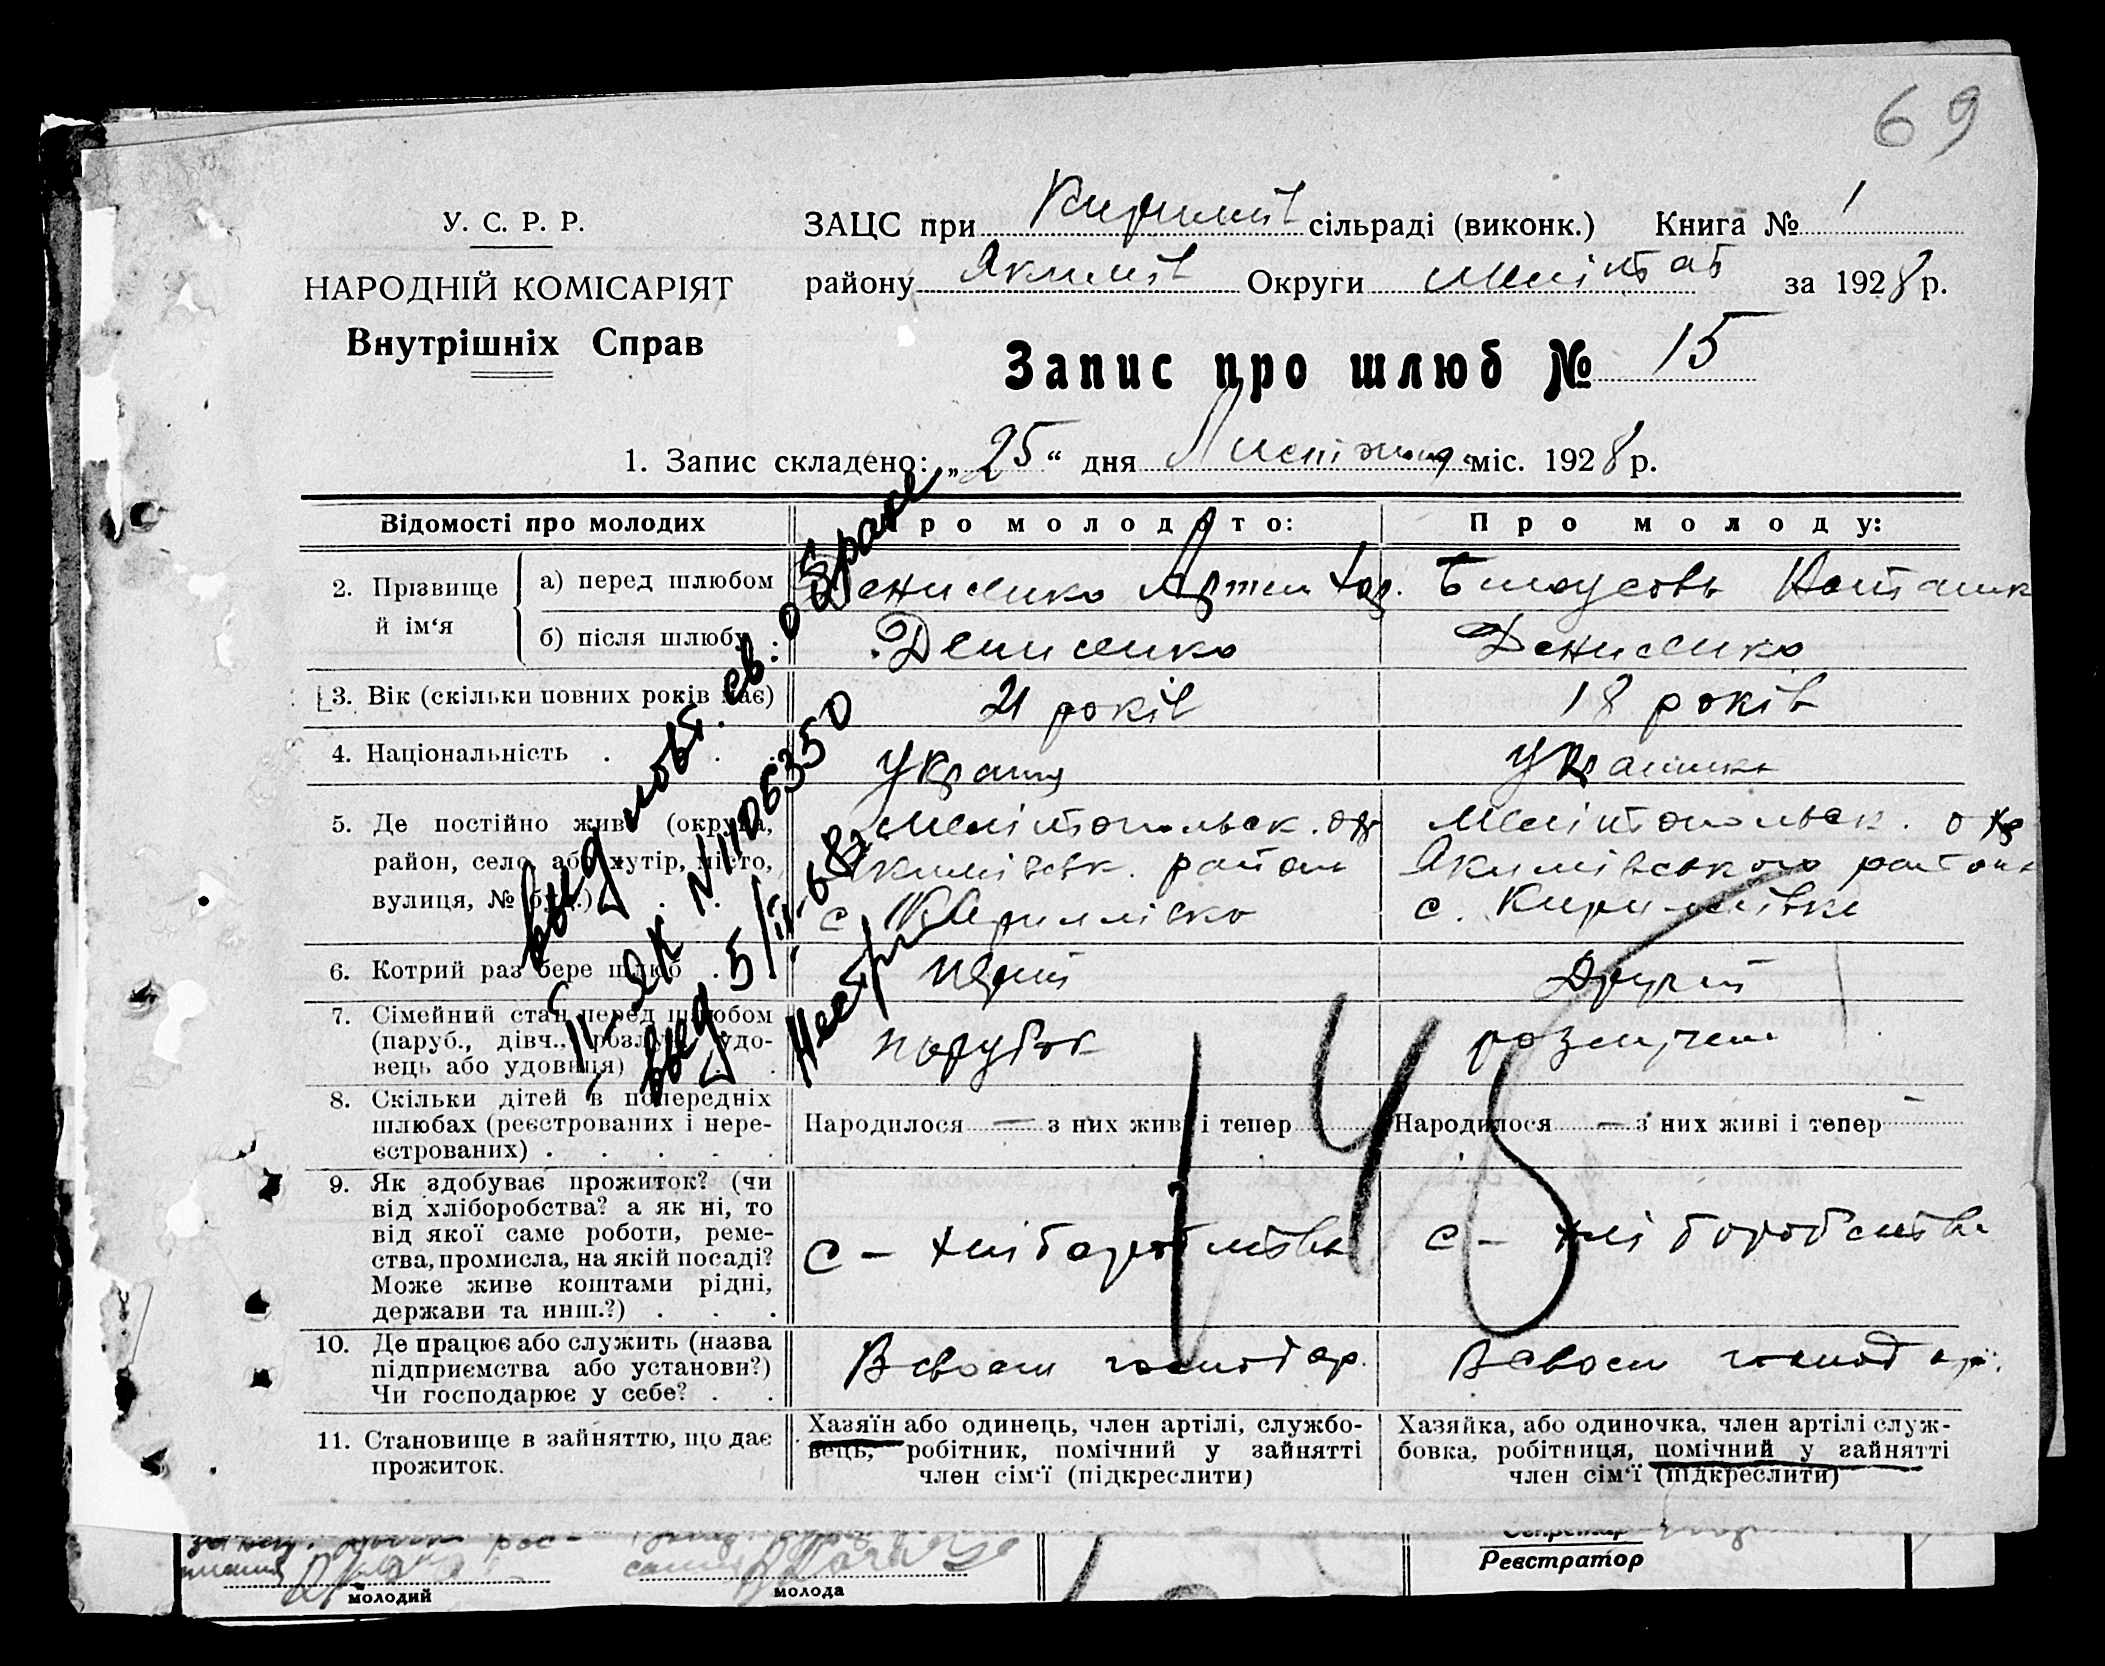 69
У. С. Р. Р.
НАРОДНІЙ КОМІСАРІЯТ
Внутрішніх Справ
ЗАЦС при Кирилів сільраді (виконк.) Книга № 1
району Якимів Округи Меліто за 1928 р.
Запис про шлюб № 15
1. Запис складено: „25“ дня міс. 1928 р.
Відомості про молодих
Про молодого:
Про молоду:
2. Прізвище й ім‘я
а) перед шлюбом
Денисенко Артем
Білоусова
б) після шлюбу
Денисенко
Денисенко
3. Вік (скільки повних років має)
21 років
18 років
4. Національність
Україн
Українка
5. Де постійно живе (округа,
район, село, або хутір, місто,
вулиця, № буд.)
Мелітопольск. окр
Якимівськ. район
с Кирилівка
Мелітопольск. окр
Якимівського район
с. Кирилівка
6. Котрий раз бере шлюб
перший
Другий
7. Сімейний стан перед шлюбом
(паруб., дівч., розлуч., удо-
вець або удовиця)
парубок
розлучена
8. Скільки дітей в попередніх
шлюбах (реєстрованих і нере-
єстрованих)
Народилося — з них живі і тепер
Народилося — з них живі і тепер —
9. Як здобуває прожиток? (чи
від хліборобства? а як ні, то
від якої саме роботи, реме-
ства, промисла, на якій посаді?
Може живе коштами рідні,
держави та инш.?)
с – хліборобства
с – хліборобства
10. Де працює або служить (назва
підприємства або установи?)
Чи господарює у себе?
В своєм господар.
В своєм господар.
11. Становище в зайняттю, що дає
прожиток.
Хазяїн або одинець, член артілі, службо-
вець, робітник, помічний у зайнятті
член сім‘ї (підкреслити)
Хазяйка, або одиночка, член артілі служ-
бовка, робітниця, помічний у зайнятті
член сім‘ї (підкреслити)
выд. повт. св. о браке
II-ЯК № 1106350
выд. 5/II-68
145
молодий
молода
Секретар
Реєстратор